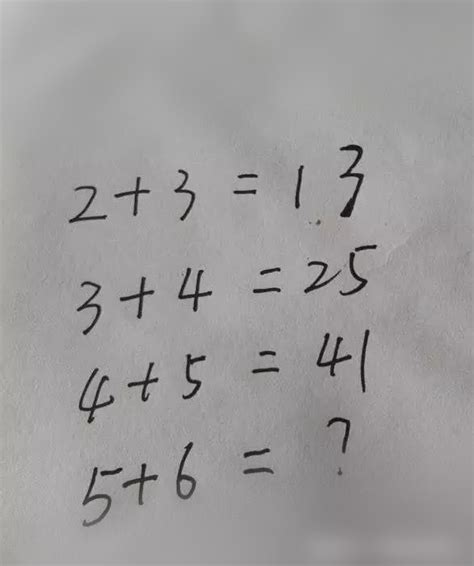 2+3=13
3+4=25
4+5=41
5+6=?